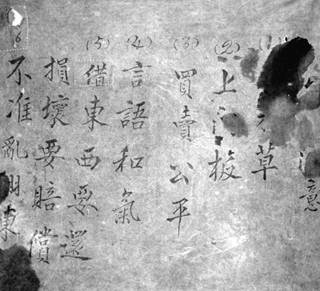 意
草
(2) 上门板
(3) 買賣公平
(4) 言語和氣
(5) 借東西要還
損壞要賠償
6 不准亂翻東